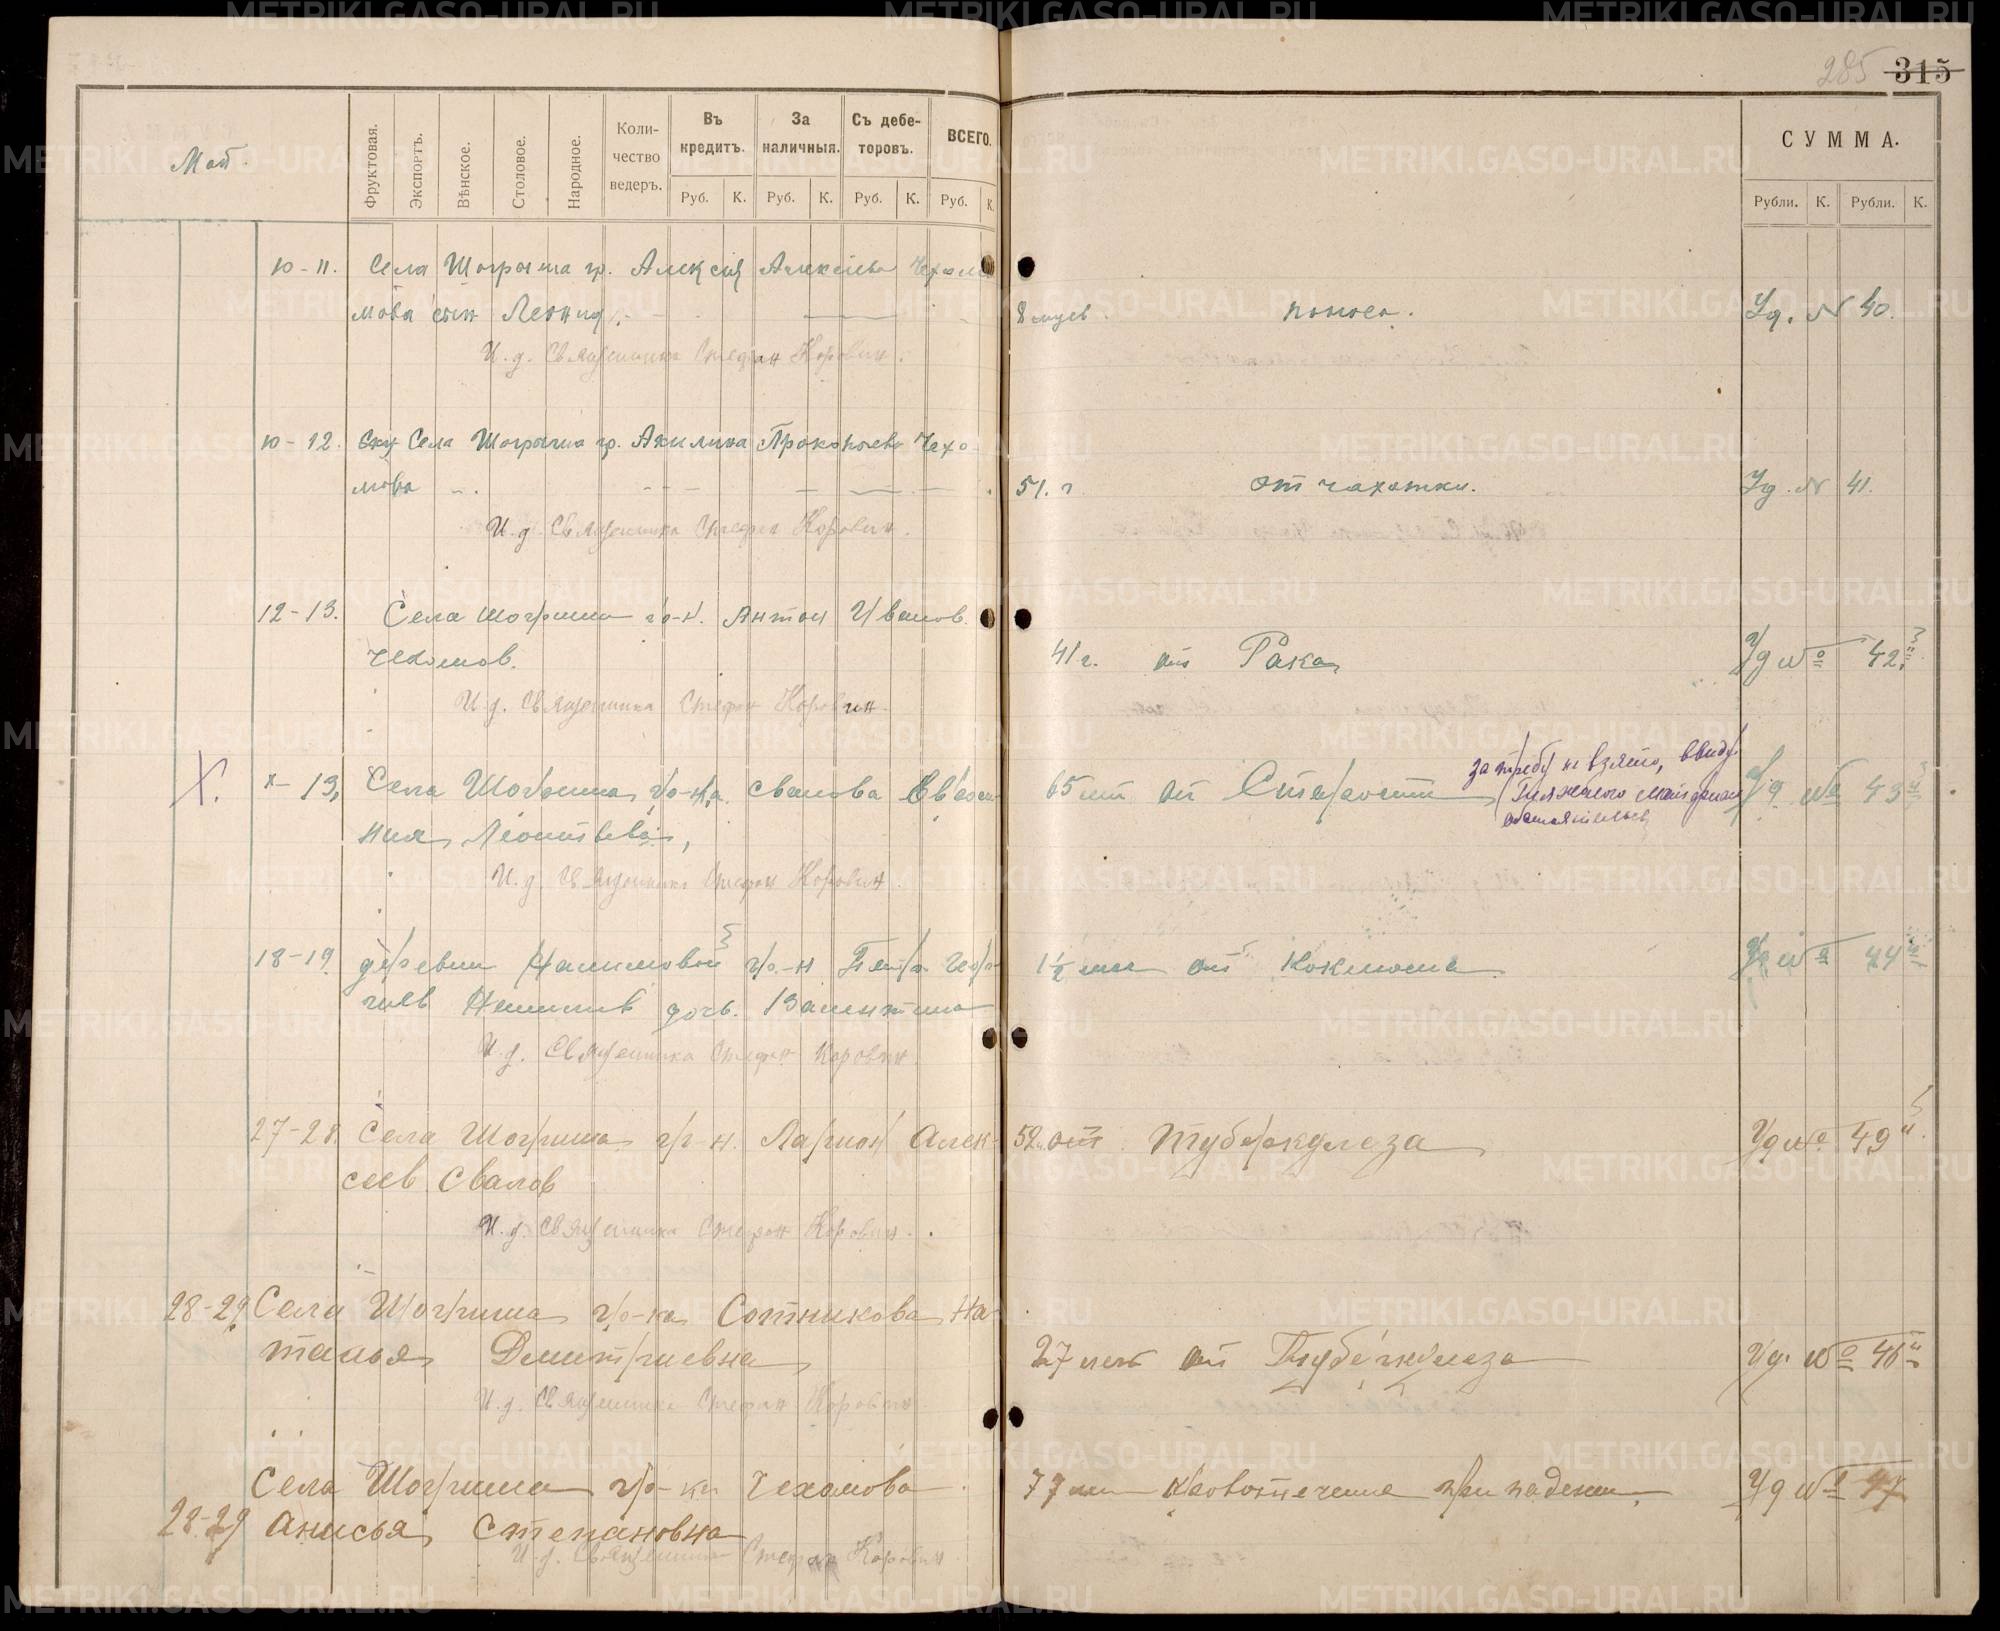 285 315
Май.
Фруктовая. Экспортъ. Вѣнское. Столовое. Народное. Коли-чество ведеръ. Въ кредитъ. За наличныя. Съ дебе-торовъ. ВСЕГО.
Руб. К. Руб. К. Руб. К. Руб. К.
СУММА.
Рубли. К. Рубли. К.
10-11. Села Шогрыша гр. Алексѣя Алексѣева Чехо
мова сын Леонид 8 понос. Уд. № 40.
И. д. Священника Стефан Коровин.
10-12. Села Шогрыша гр. Акилина Прокопьева Чехо-
мова 51. г от чахотки. Уд. № 41.
И. д. Священника Стефан Коровин.
12-13. Села Шогриша гр-н. Антон Иванов.
Чехомов. 41 г. от Рака Уд № 42
И. д. Священника Стефан Коровин.
X. 13, Села Шогриша гр-ка Свалова Евдо
кия Леонтьева, 65 лет от Старости Уд № 43
за требу не взято, ввиду
тяжелого матерьял
обстоятельств
И. д. Священника Стефан Коровин.
18-19. деревни гр-н Петр Геор-
гиев дочь Валентина 1½ от Коклюша Уд № 44
И. д. Священника Стефан Коровин.
27-28. Села Шогриша гр-н. Ларион Алек-
сеев Свалов 52 от туберкулеза Уд №
И. д. Священника Стефан Коровин.
28-29 Села Шогриша гр-ка Сотникова На
талья Дмитриевна 27 лет от Туберкулеза Уд. № 46
И. д. Священника Стефан Коровин
Села Шогриша гр-ки Чехомова
28-29 Анисья Степановна 77 лет Кровотечение при падении Уд № 47
И. д. Священника Стефан Коровин
METRIKI.GASO-URAL.RU